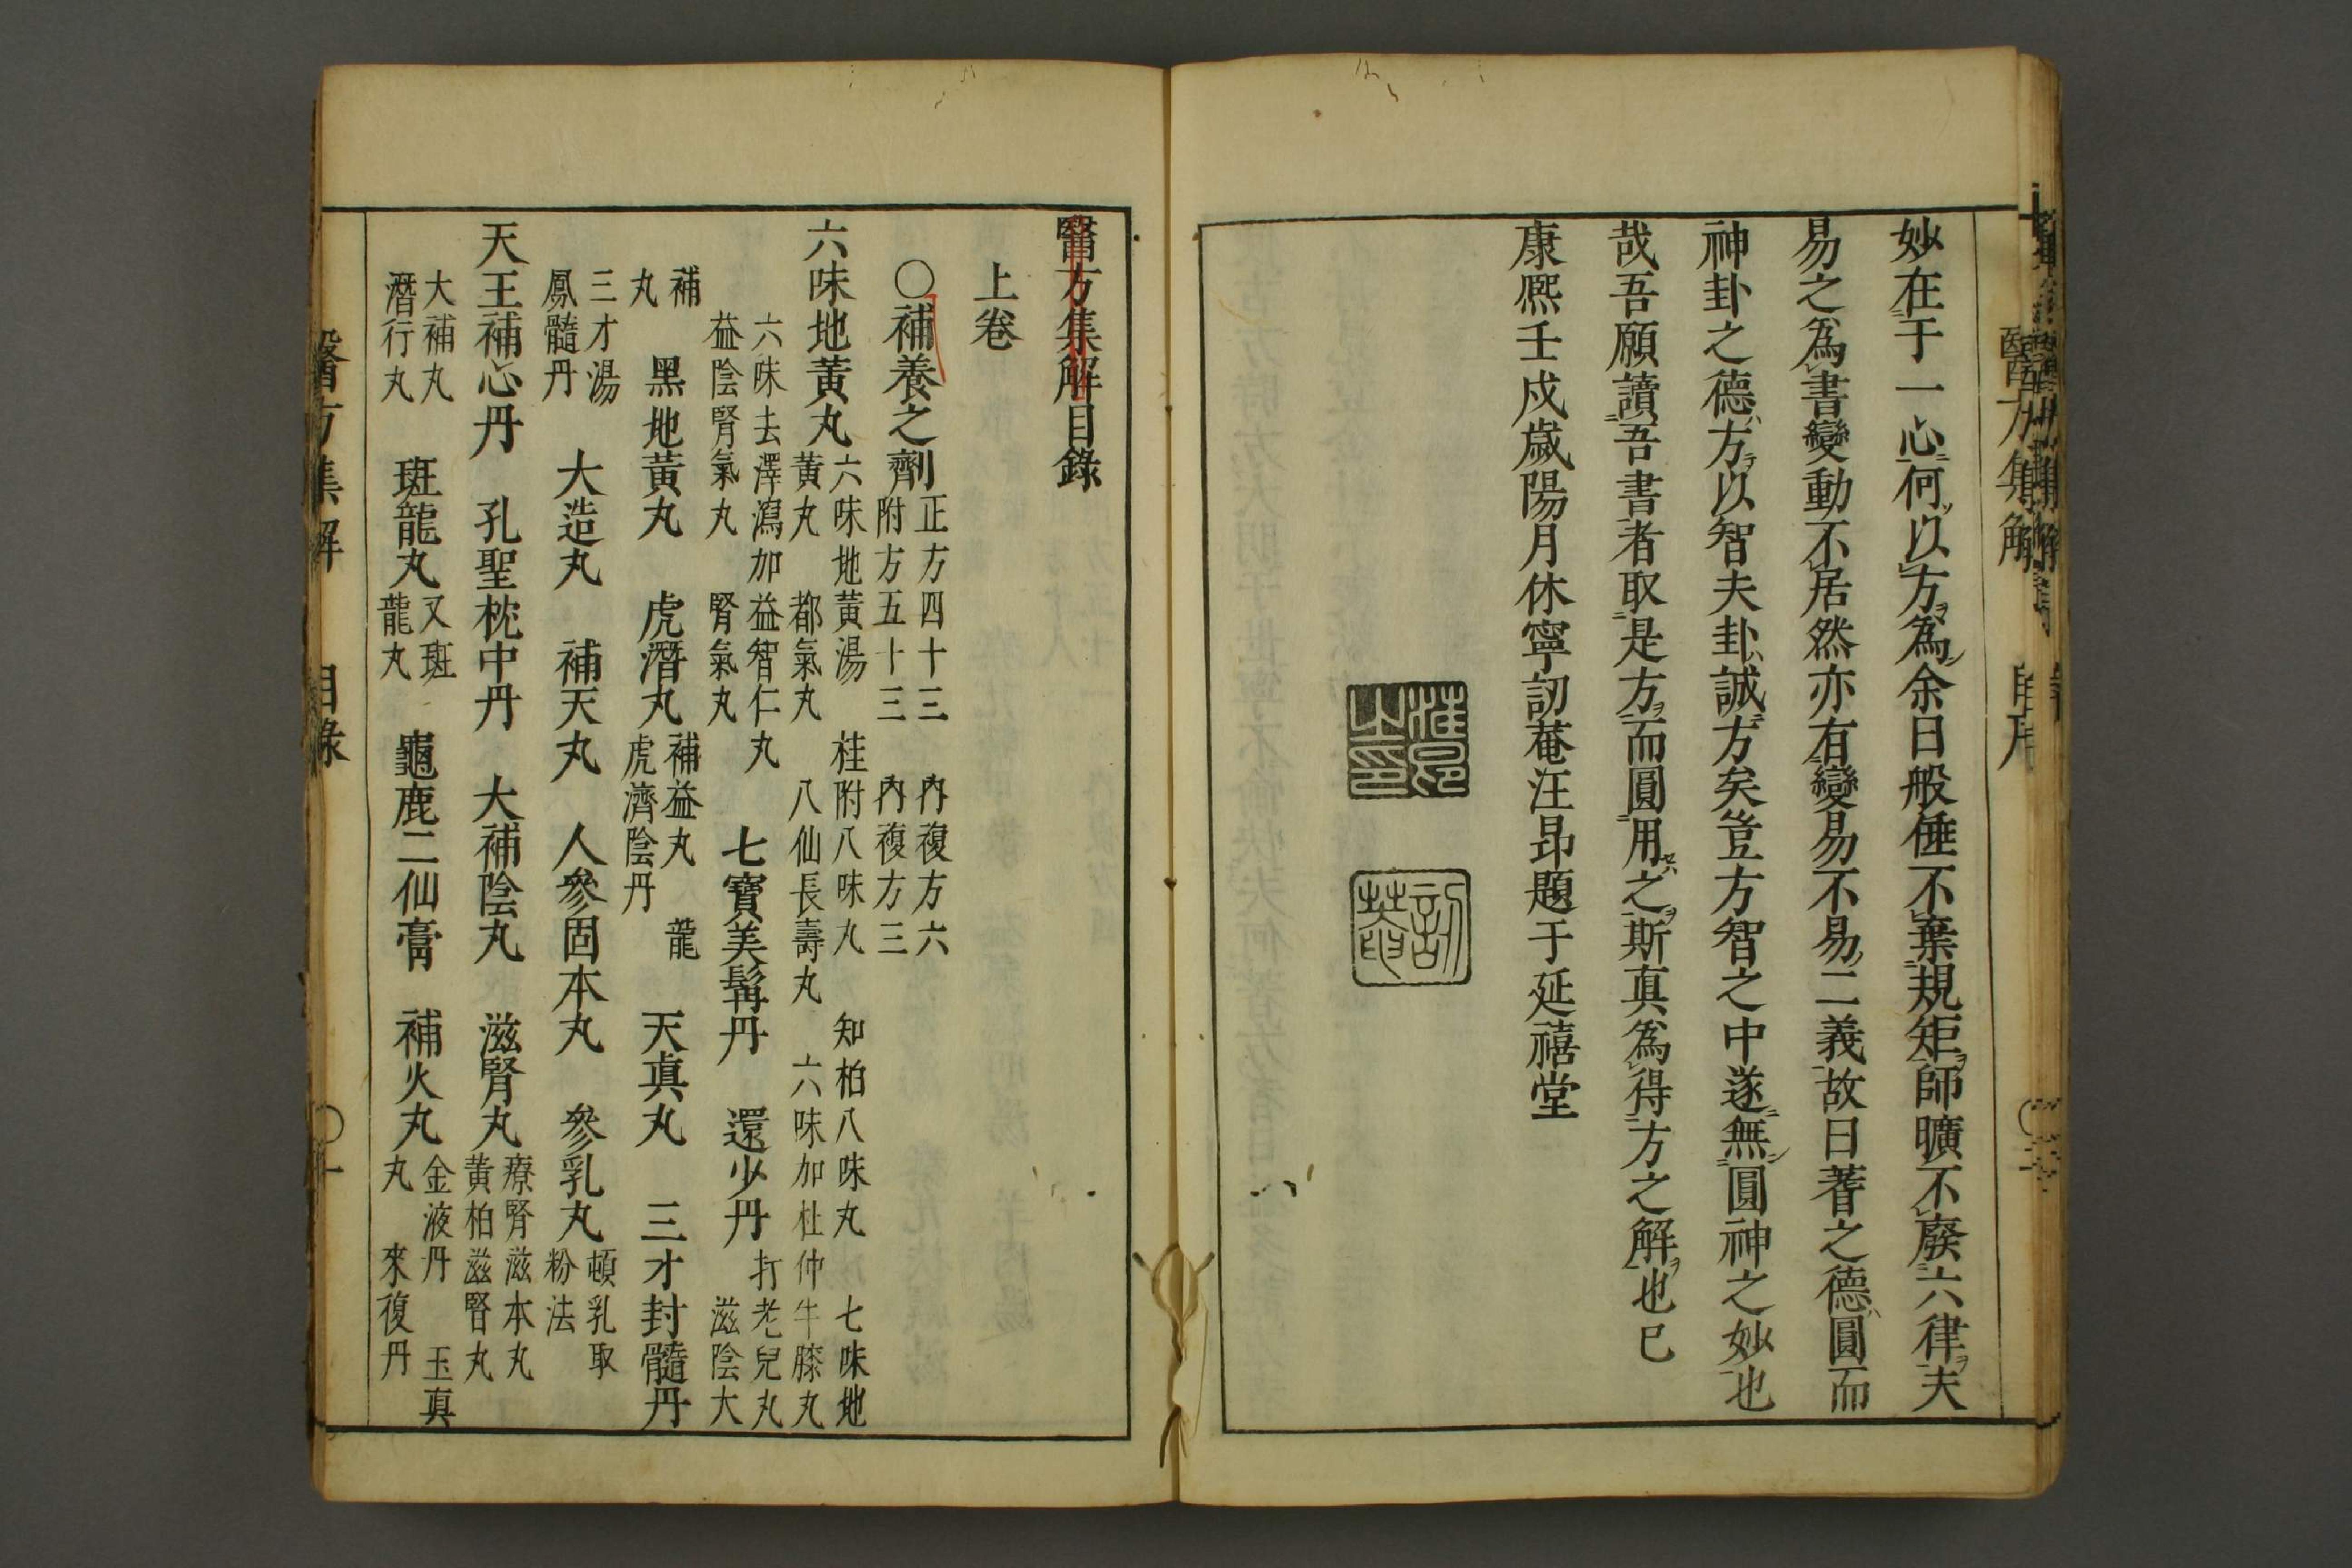 妙在于一心何以方為余曰般倕不棄規矩師曠不廢六律夫
易之為書變動不居然亦有變易不易二義故曰蓍之德圓而
神卦之德方以智夫卦誠方矣豈方智之中遂無圓神之妙也
哉吾願讀吾書者取是方而圓用之斯真為得方之解也已
康熙壬戌歲陽月休寧訒菴汪昂題于延禧堂
汪昂之印
訒菴
醫方集解
自序
醫方集解目錄
上卷
○補養之劑
正方四十三 內複方六
附方五十三 內複方三
六味地黃丸
六味地黃湯 桂附八味丸 知柏八味丸 七味地
黃丸 都氣丸 八仙長壽丸 六味加杜仲牛膝丸
六味去澤瀉加益智仁丸
益陰腎氣丸 腎氣丸
七寶美髯丹 還少丹
打老兒丸
滋陰大
補
丸
黑地黃丸 虎潛丸
補益丸 龍
虎濟陰丹
天真丸 三才封髓丹
三才湯
鳳髓丹
大造丸 補天丸 人參固本丸 參乳丸
頓乳取
粉法
天王補心丹 孔聖枕中丹 大補陰丸 滋腎丸
療腎滋本丸
黃柏滋腎丸
大補丸
潛行丸
斑龍丸
又斑
龍丸
龜鹿二仙膏 補火丸
金液丹 玉真
丸 來復丹
醫方集解 目錄 ○一